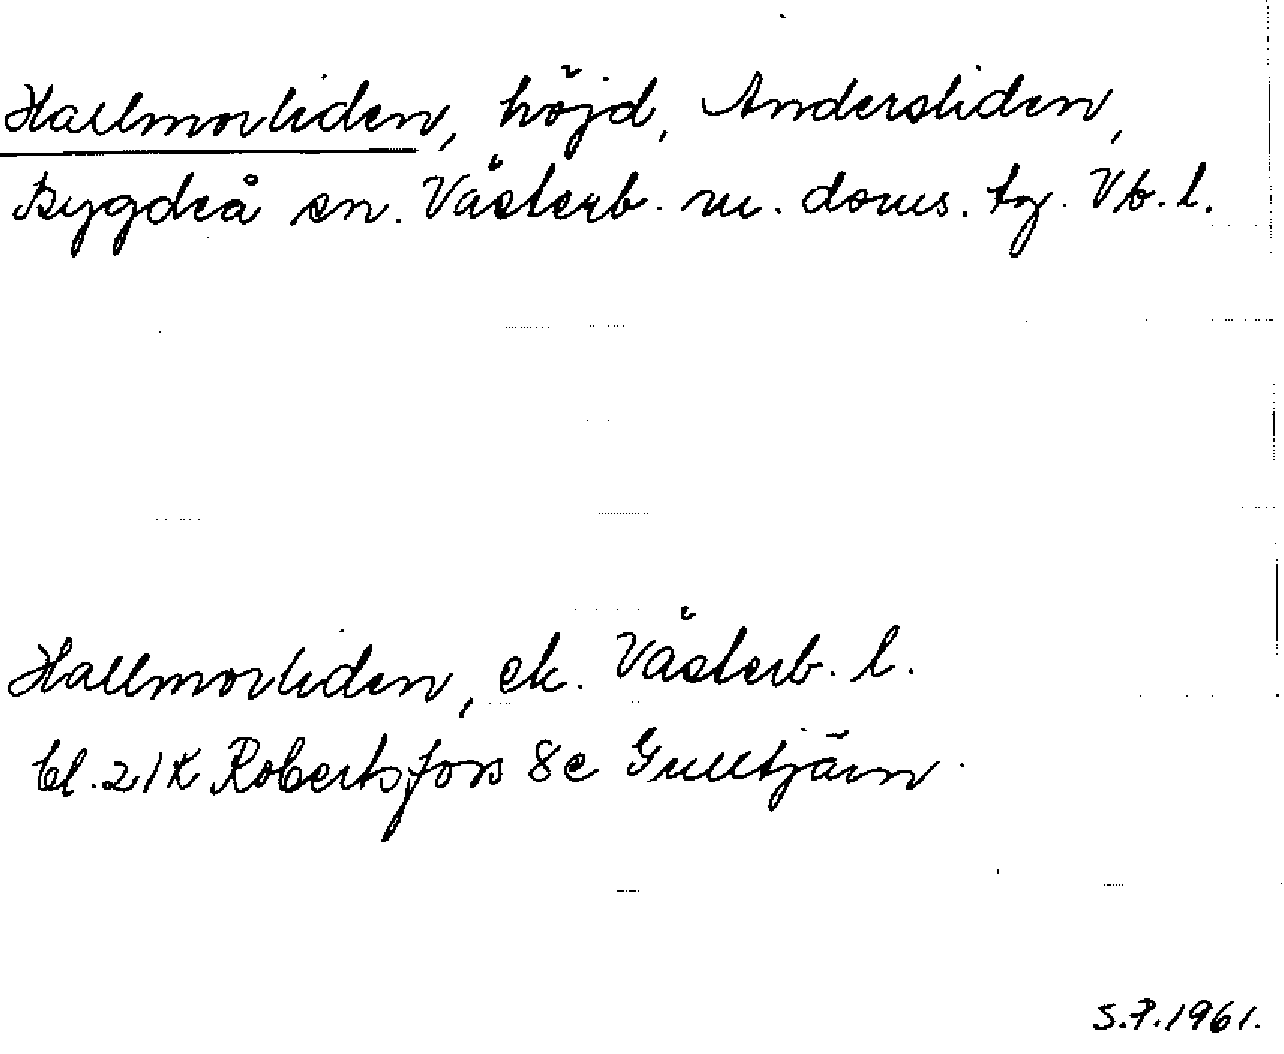 Hallmorliden, höjd, Andersliden,
Bygdeå sn. Västerb. m. doms. tg. Vb. l.
Hallmorliden, ek. Västerb. l.
bl. 21K Robertsfors 8e Gulltjärn.
S.P. 1961.